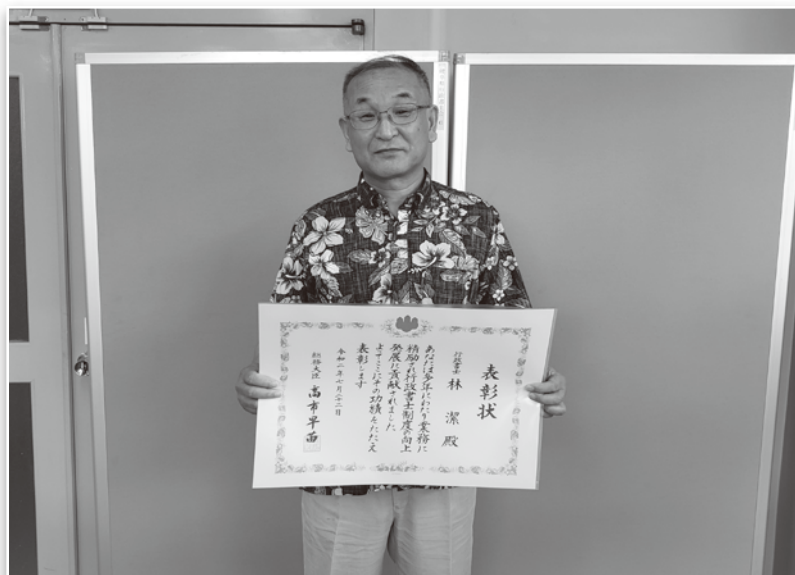 表彰状
行政書士 林 潔 殿
あなたは多年にわたり業務に
精励され行政書士制度の向上
発展に貢献されました
よってここにその功績をたたえ
表彰します
令和二年七月二十二日
総務大臣 高市早苗